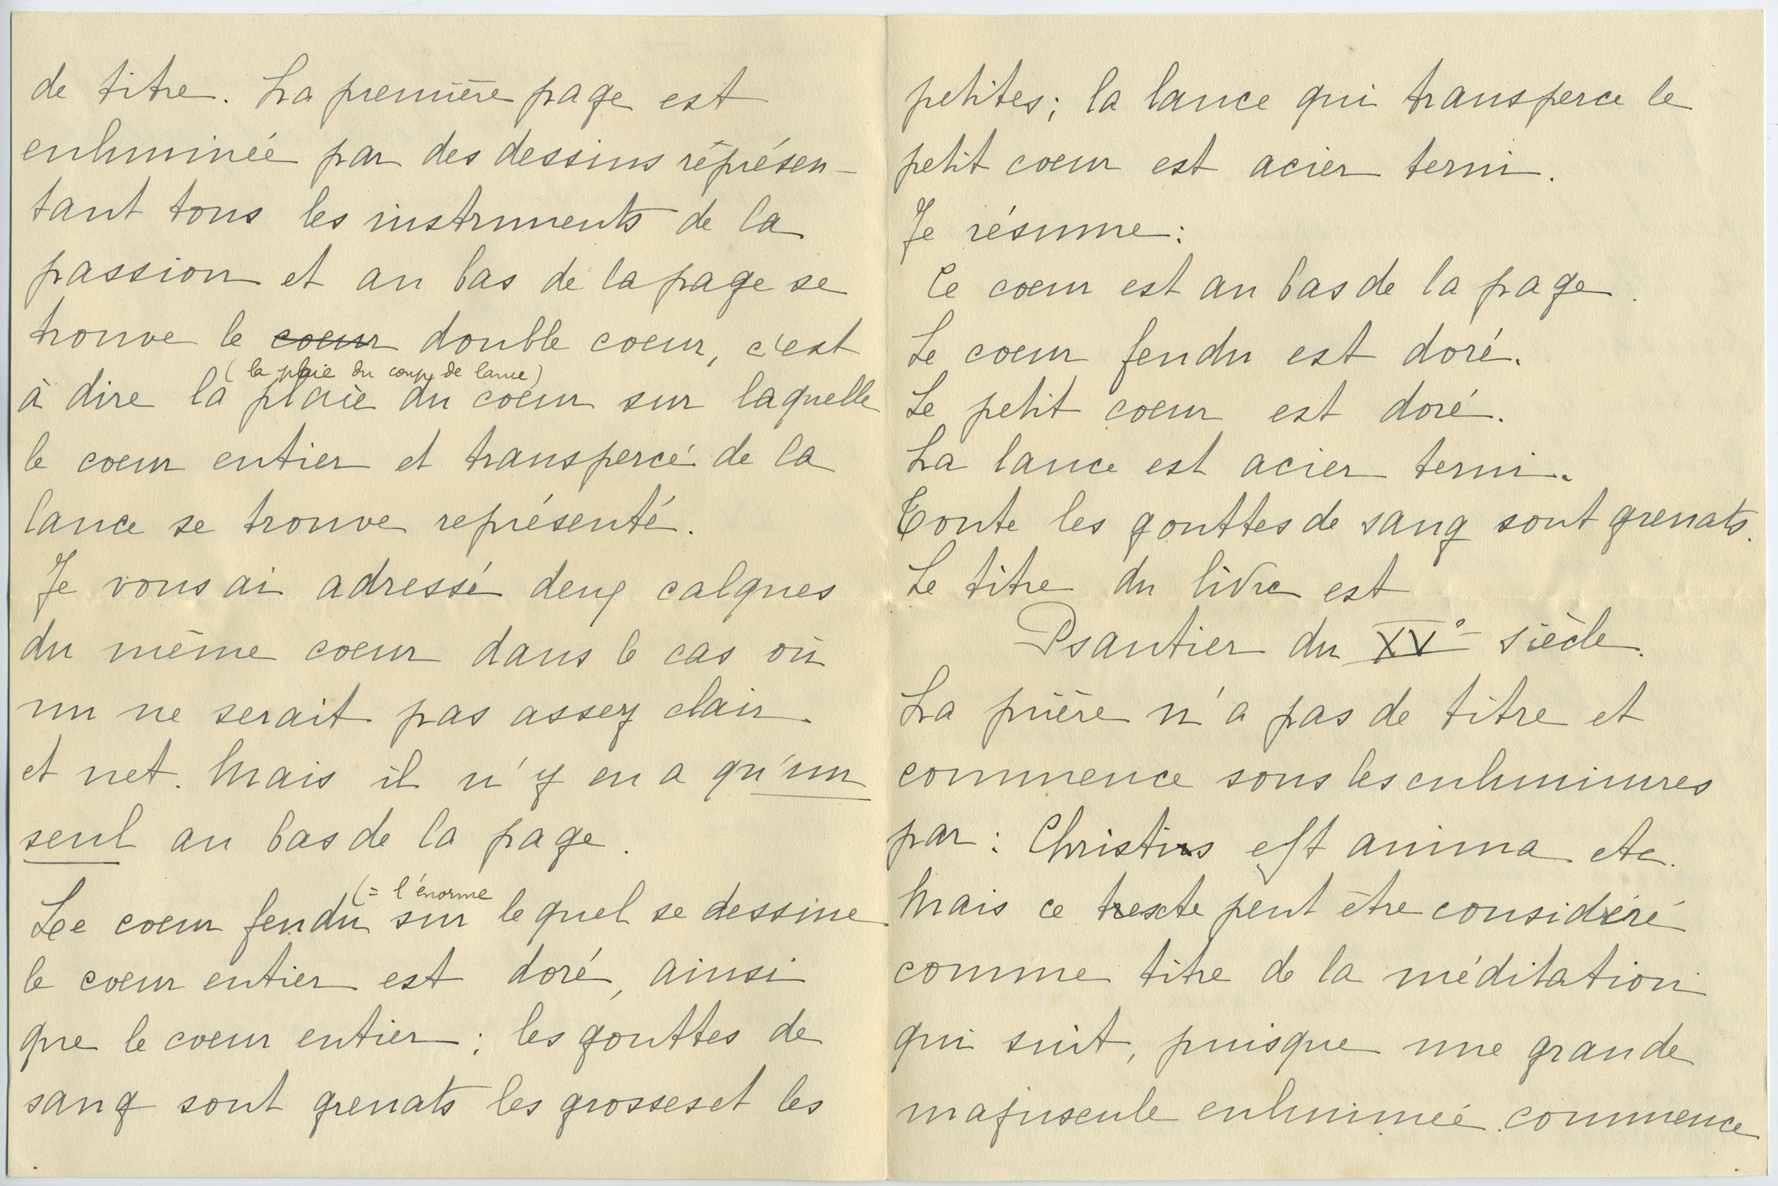 de titre. La première page est
enluminée par des dessins réprésen-
tant tous les instruments de la
passion et au bas de la page se
trouve le coeur double coeur, c'est
(la plaie du coup de lance)
à dire la plaie du coeur sur laquelle
le coeur entier et transpercé de la
lance se trouve représenté.
Je vous ai adressé deux calques
du même coeur dans le cas où
un ne serait pas assez clair
et net. Mais il n'y en a qu'un
seul au bas de la page.
(= l'énorme
Le coeur fendu sur lequel se dessine
le coeur entier est doré, ainsi
que le coeur entier; les gouttes de
sang sont grenats les grosses et les
petites; la lance qui transperce le
petit coeur est acier terni.
Je résume:
Le coeur est au bas de la page.
Le coeur fendu est doré.
Le petit coeur est doré.
La lance est acier terni.
Toute les gouttes de sang sont grenats.
Le titre du livre est
Psautier du XVe siècle.
La prière n'a pas de titre et
commence sous les enluminures
par: Christus est anima etc.
Mais ce texte peut être considéré
comme titre de la méditation
qui suit, puisque une grande
majuscule enluminée commence